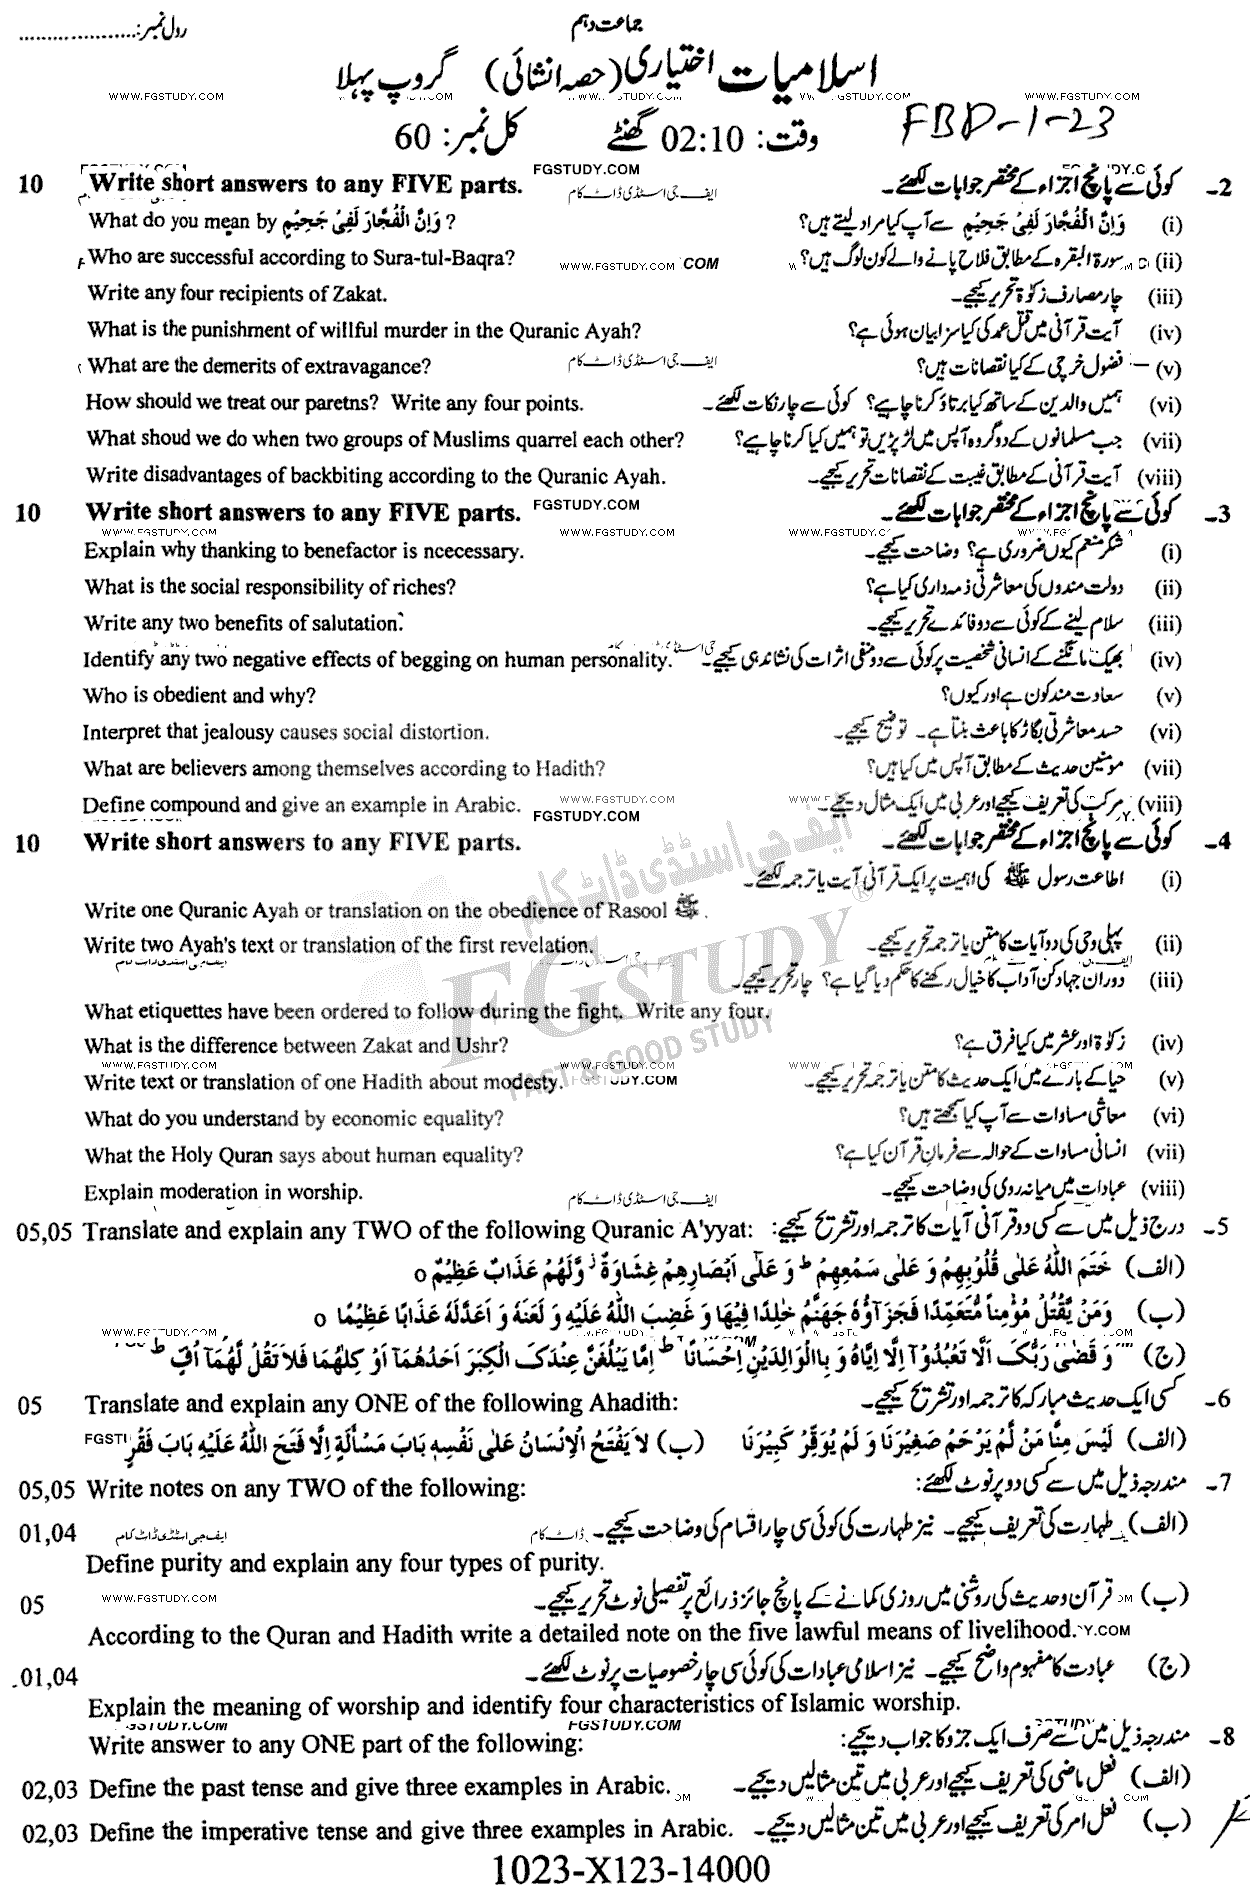 رول نمبر:.....................
جماعت دہم
اسلامیات اختیاری (حصہ انشائی) گروپ پہلا
WWW.FGSTUDY.COM WWW.FGSTUDY.COM
وقت: 02:10 گھنٹے کل نمبر: 60 FBD-1-23
FGSTUDY.COM
10 Write short answers to any FIVE parts. ایف جی اسٹڈی ڈاٹ کام کوئی سے پانچ اجزاء کے مختصر جوابات لکھئے۔ 2-
What do you mean by وَاِنَّ الْفُجَّارَ لَفِیْ جَحِیْمٍ ? وَاِنَّ الْفُجَّارَ لَفِیْ جَحِیْمٍ سے آپ کیا مراد لیتے ہیں؟ (i)
Who are successful according to Sura-tul-Baqra? WWW.FGSTUDY.COM سورۃ البقرہ کے مطابق فلاح پانے والے کون لوگ ہیں؟ (ii)
Write any four recipients of Zakat. چار مصارف زکوٰۃ تحریر کیجیے۔ (iii)
What is the punishment of willful murder in the Quranic Ayah? آیت قرآنی میں قتل عمد کی کیا سزا بیان ہوئی ہے؟ (iv)
What are the demerits of extravagance? ایف جی اسٹڈی ڈاٹ کام فضول خرچی کے کیا نقصانات ہیں؟ (v)
How should we treat our paretns? Write any four points. ہمیں والدین کے ساتھ کیا برتاؤ کرنا چاہیے؟ کوئی سے چار نکات لکھئے۔ (vi)
What shoud we do when two groups of Muslims quarrel each other? جب مسلمانوں کے دو گروہ آپس میں لڑ پڑیں تو ہمیں کیا کرنا چاہیے؟ (vii)
Write disadvantages of backbiting according to the Quranic Ayah. آیت قرآنی کے مطابق غیبت کے نقصانات تحریر کیجیے۔ (viii)
10 Write short answers to any FIVE parts. FGSTUDY.COM کوئی سے پانچ اجزاء کے مختصر جوابات لکھئے۔ 3-
WWW.FGSTUDY.COM WWW.FGSTUDY.COM
Explain why thanking to benefactor is ncecessary. شکر منعم کیوں ضروری ہے؟ وضاحت کیجیے۔ (i)
What is the social responsibility of riches? دولت مندوں کی معاشرتی ذمہ داری کیا ہے؟ (ii)
Write any two benefits of salutation. سلام لینے کے کوئی سے دو فائدے تحریر کیجیے۔ (iii)
Identify any two negative effects of begging on human personality. بھیک مانگنے کے انسانی شخصیت پر کوئی سے دو منفی اثرات کی نشاندہی کیجیے۔ (iv)
Who is obedient and why? سعادت مند کون ہے اور کیوں؟ (v)
Interpret that jealousy causes social distortion. حسد معاشرتی بگاڑ کا باعث بنتا ہے۔ توضیح کیجیے۔ (vi)
What are believers among themselves according to Hadith? مومنین حدیث کے مطابق آپس میں کیا ہیں؟ (vii)
Define compound and give an example in Arabic. WWW.FGSTUDY.COM مرکب کی تعریف کیجیے اور عربی میں ایک مثال دیجیے۔ (viii)
FGSTUDY.COM
10 Write short answers to any FIVE parts. کوئی سے پانچ اجزاء کے مختصر جوابات لکھئے۔ 4-
اطاعت رسول ﷺ کی اہمیت پر ایک قرآنی آیت یا ترجمہ لکھئے۔ (i)
Write one Quranic Ayah or translation on the obedience of Rasool ﷺ.
Write two Ayah's text or translation of the first revelation. پہلی وحی کی دو آیات کا متن یا ترجمہ تحریر کیجیے۔ (ii)
دوران جہاد کن آداب کا خیال رکھنے کا حکم دیا گیا ہے؟ چار تحریر کیجیے۔ (iii)
ایف جی اسٹڈی ڈاٹ کام
FG STUDY ®
FAST & GOOD STUDY
What etiquettes have been ordered to follow during the fight. Write any four.
What is the difference between Zakat and Ushr? زکوٰۃ اور عشر میں کیا فرق ہے؟ (iv)
WWW.FGSTUDY.COM WWW.FGSTUDY.COM
Write text or translation of one Hadith about modesty. FGSTUDY.COM حیا کے بارے میں ایک حدیث کا متن یا ترجمہ تحریر کیجیے۔ (v)
What do you understand by economic equality? معاشی مساوات سے آپ کیا سمجھتے ہیں؟ (vi)
What the Holy Quran says about human equality? انسانی مساوات کے حوالہ سے فرمان قرآن کیا ہے؟ (vii)
Explain moderation in worship. ایف جی اسٹڈی ڈاٹ کام عبادات میں میانہ روی کی وضاحت کیجیے۔ (viii)
05,05 Translate and explain any TWO of the following Quranic A'yyat: درج ذیل میں سے کسی دو قرآنی آیات کا ترجمہ اور تشریح کیجیے: 5-
(الف) خَتَمَ اللّٰهُ عَلٰی قُلُوْبِهِمْ وَ عَلٰی سَمْعِهِمْ ؕ وَ عَلٰۤی اَبْصَارِهِمْ غِشَاوَةٌ ۫ وَّلَهُمْ عَذَابٌ عَظِیْمٌ o
(ب) وَمَنْ یَّقْتُلْ مُؤْمِناً مُّتَعَمِّدًا فَجَزَآؤُهٗ جَهَنَّمُ خٰلِدًا فِیْهَا وَ غَضِبَ اللّٰهُ عَلَیْهِ وَ لَعَنَهٗ وَ اَعَدَّلَهٗ عَذَابًا عَظِیْمًا o
WWW.FGSTUDY.COM
(ج) وَ قَضٰی رَبُّکَ اَلَّا تَعْبُدُوْۤا اِلَّا اِیَّاهُ وَ بِاالْوَالِدَیْنِ اِحْسَانًا ؕ اِمَّا یَبْلُغَنَّ عِنْدَکَ الْکِبَرَ اَحَدُهُمَاۤ اَوْ کِلٰهُمَا فَلَا تَقُلْ لَّهُمَاۤ اُفٍّ ؕ
05 Translate and explain any ONE of the following Ahadith: کسی ایک حدیث مبارکہ کا ترجمہ اور تشریح کیجیے۔ 6-
(الف) لَیْسَ مِنَّا مَنْ لَّمْ یَرْحَمْ صَغِیْرَنَا وَ لَمْ یُوَقِّرْ کَبِیْرَنَا (ب) لَا یَفْتَحُ الْاِنْسَانُ عَلٰی نَفْسِهٖ بَابَ مَسْأَلَةٍ اِلَّا فَتَحَ اللّٰهُ عَلَیْهِ بَابَ فَقْرٍ
05,05 Write notes on any TWO of the following: مندرجہ ذیل میں سے کسی دو پر نوٹ لکھئے: 7-
01,04 ایف جی اسٹڈی ڈاٹ کام (الف) طہارت کی تعریف کیجیے۔ نیز طہارت کی کوئی سی چار اقسام کی وضاحت کیجیے۔
Define purity and explain any four types of purity.
05 WWW.FGSTUDY.COM (ب) قرآن و حدیث کی روشنی میں روزی کمانے کے پانچ جائز ذرائع پر تفصیلی نوٹ تحریر کیجیے۔
According to the Quran and Hadith write a detailed note on the five lawful means of livelihood.
01,04 (ج) عبادت کا مفہوم واضح کیجیے۔ نیز اسلامی عبادات کی کوئی سی چار خصوصیات پر نوٹ لکھئے۔
Explain the meaning of worship and identify four characteristics of Islamic worship.
FGSTUDY.COM FGSTUDY.COM
Write answer to any ONE part of the following: مندرجہ ذیل میں سے صرف ایک جزو کا جواب دیجیے: 8-
02,03 Define the past tense and give three examples in Arabic. (الف) فعل ماضی کی تعریف کیجیے اور عربی میں تین مثالیں دیجیے۔
02,03 Define the imperative tense and give three examples in Arabic. (ب) فعل امر کی تعریف کیجیے اور عربی میں تین مثالیں دیجیے۔
1023-X123-14000